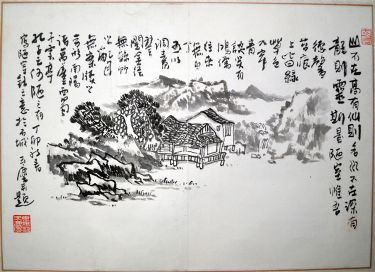 山不在高有仙則名水不在深有
龍則靈斯是陋室惟吾
德馨
苔痕
上階綠
草色
入簾
青
談笑有
鴻儒
往來
無白
丁可以
調素
琴
閱金經
無絲竹
之亂耳
無案牘之
勞形南陽
諸葛廬西蜀
子雲亭
孔子云何陋之有丁卯初春
寫陋室銘之意於石城
題